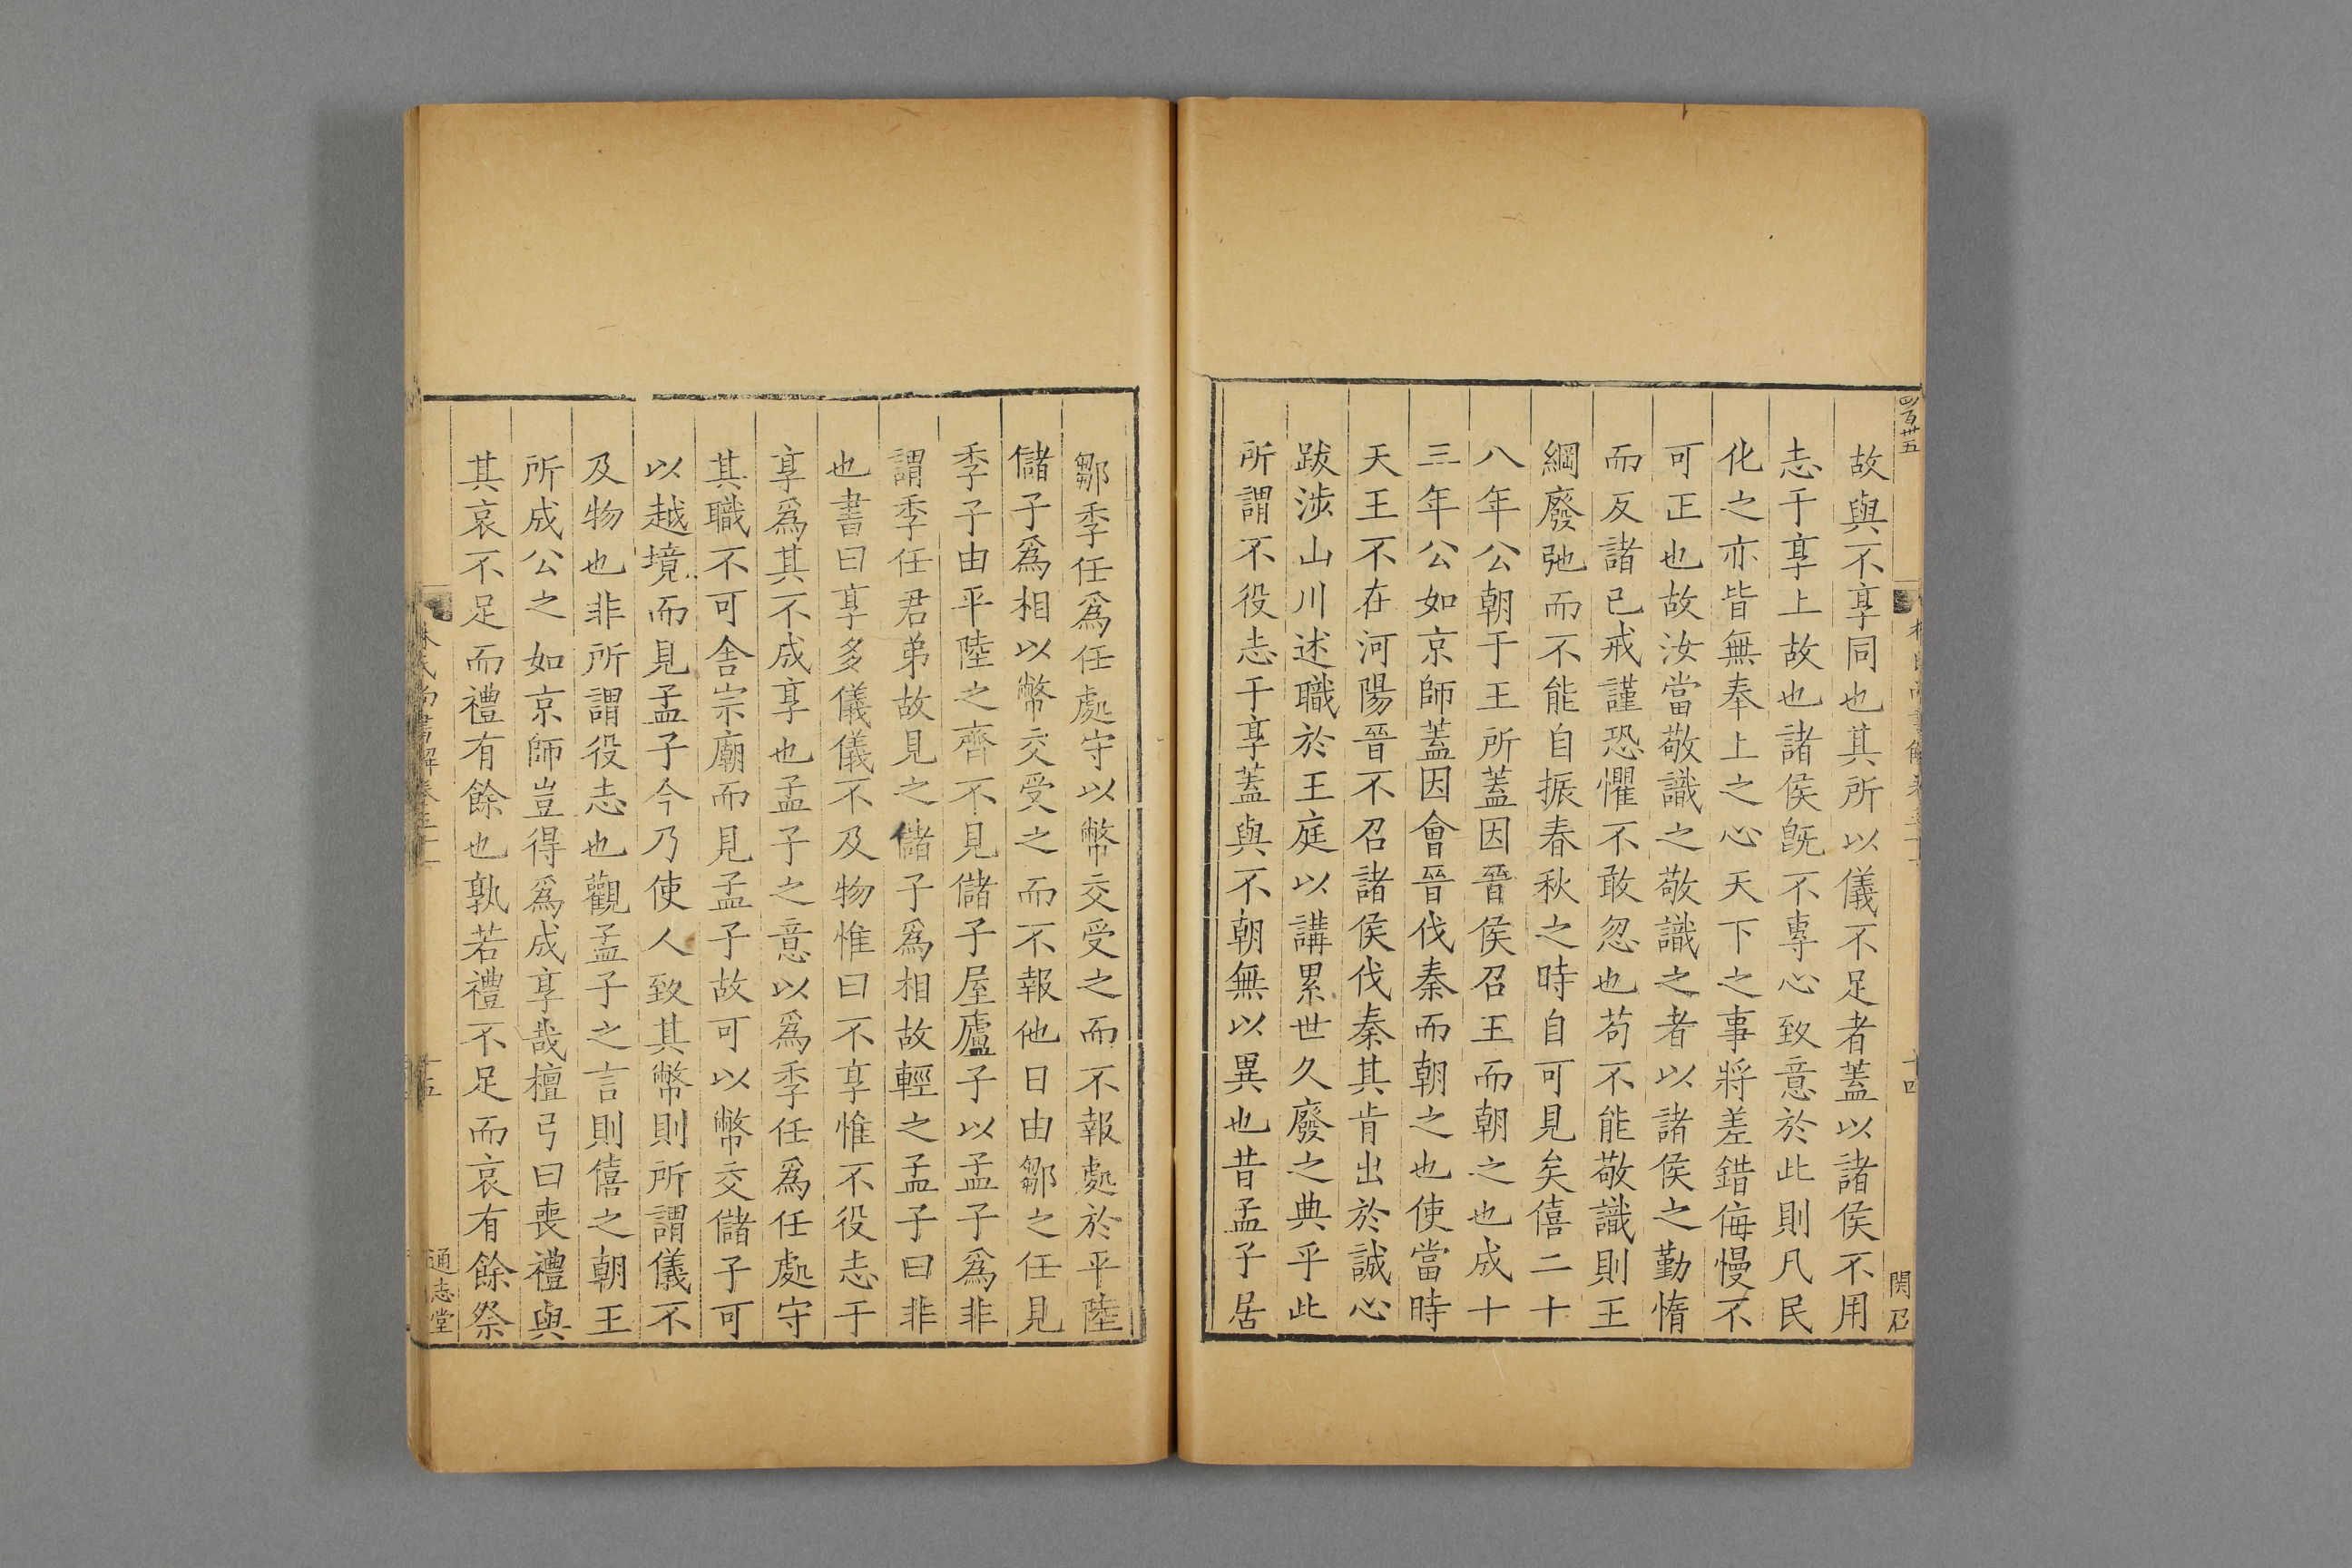 四百卅五
十四
関召
故與不享同也其所以儀不足者蓋以諸侯不用
志于享上故也諸侯旣不專心致意於此則凡民
化之亦皆無奉上之心天下之事將差錯侮慢不
可正也故汝當敬識之敬識之者以諸侯之勤惰
而反諸已戒謹恐懼不敢忽也苟不能敬識則王
綱廢弛而不能自振春秋之時自可見矣僖二十
八年公朝于王所蓋因晉侯召王而朝之也成十
三年公如京師蓋因會晉伐秦而朝之也使當時
天王不在河陽晉不召諸侯伐秦其肯出於誠心
跋涉山川述職於王庭以講累世久廢之典乎此
所謂不役志于享蓋與不朝無以異也昔孟子居
鄒季任爲任處守以幣交受之而不報處於平陸
儲子爲相以幣交受之而不報他日由鄒之任見
季子由平陸之齊不見儲子屋廬子以孟子爲非
謂季任君弟故見之儲子爲相故輕之孟子曰非
也書曰享多儀儀不及物惟曰不享惟不役志于
享爲其不成享也孟子之意以爲季任爲任處守
其職不可舍宗廟而見孟子故可以幣交儲子可
以越境而見孟子今乃使人致其幣則所謂儀不
及物也非所謂役志也觀孟子之言則僖之朝王
所成公之如京師豈得爲成享哉檀弓曰喪禮與
其哀不足而禮有餘也孰若禮不足而哀有餘祭
林氏尚書解卷三十
十五
通志堂